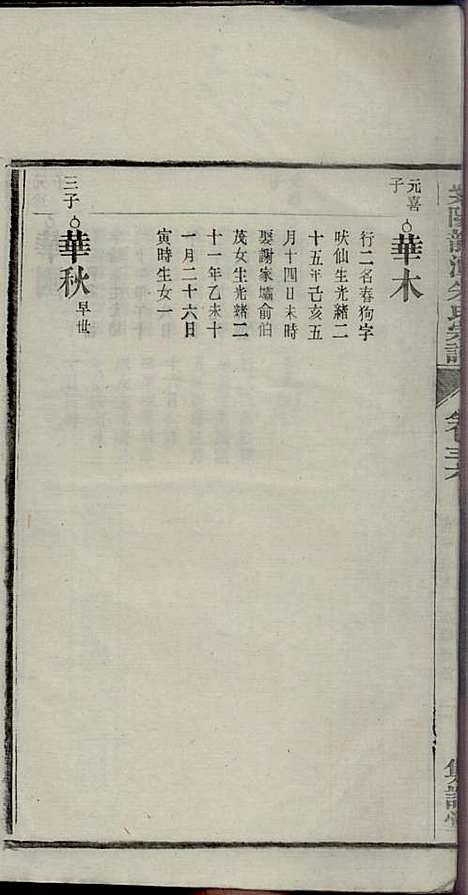 元喜子
華木
行二名春狗字
吠仙生光緒二
十五年己亥五
月十四日未時
娶謝家壩俞伯
茂女生光緒二
十一年乙未十
一月二十六日
寅時生女一
三子
華秋
早世